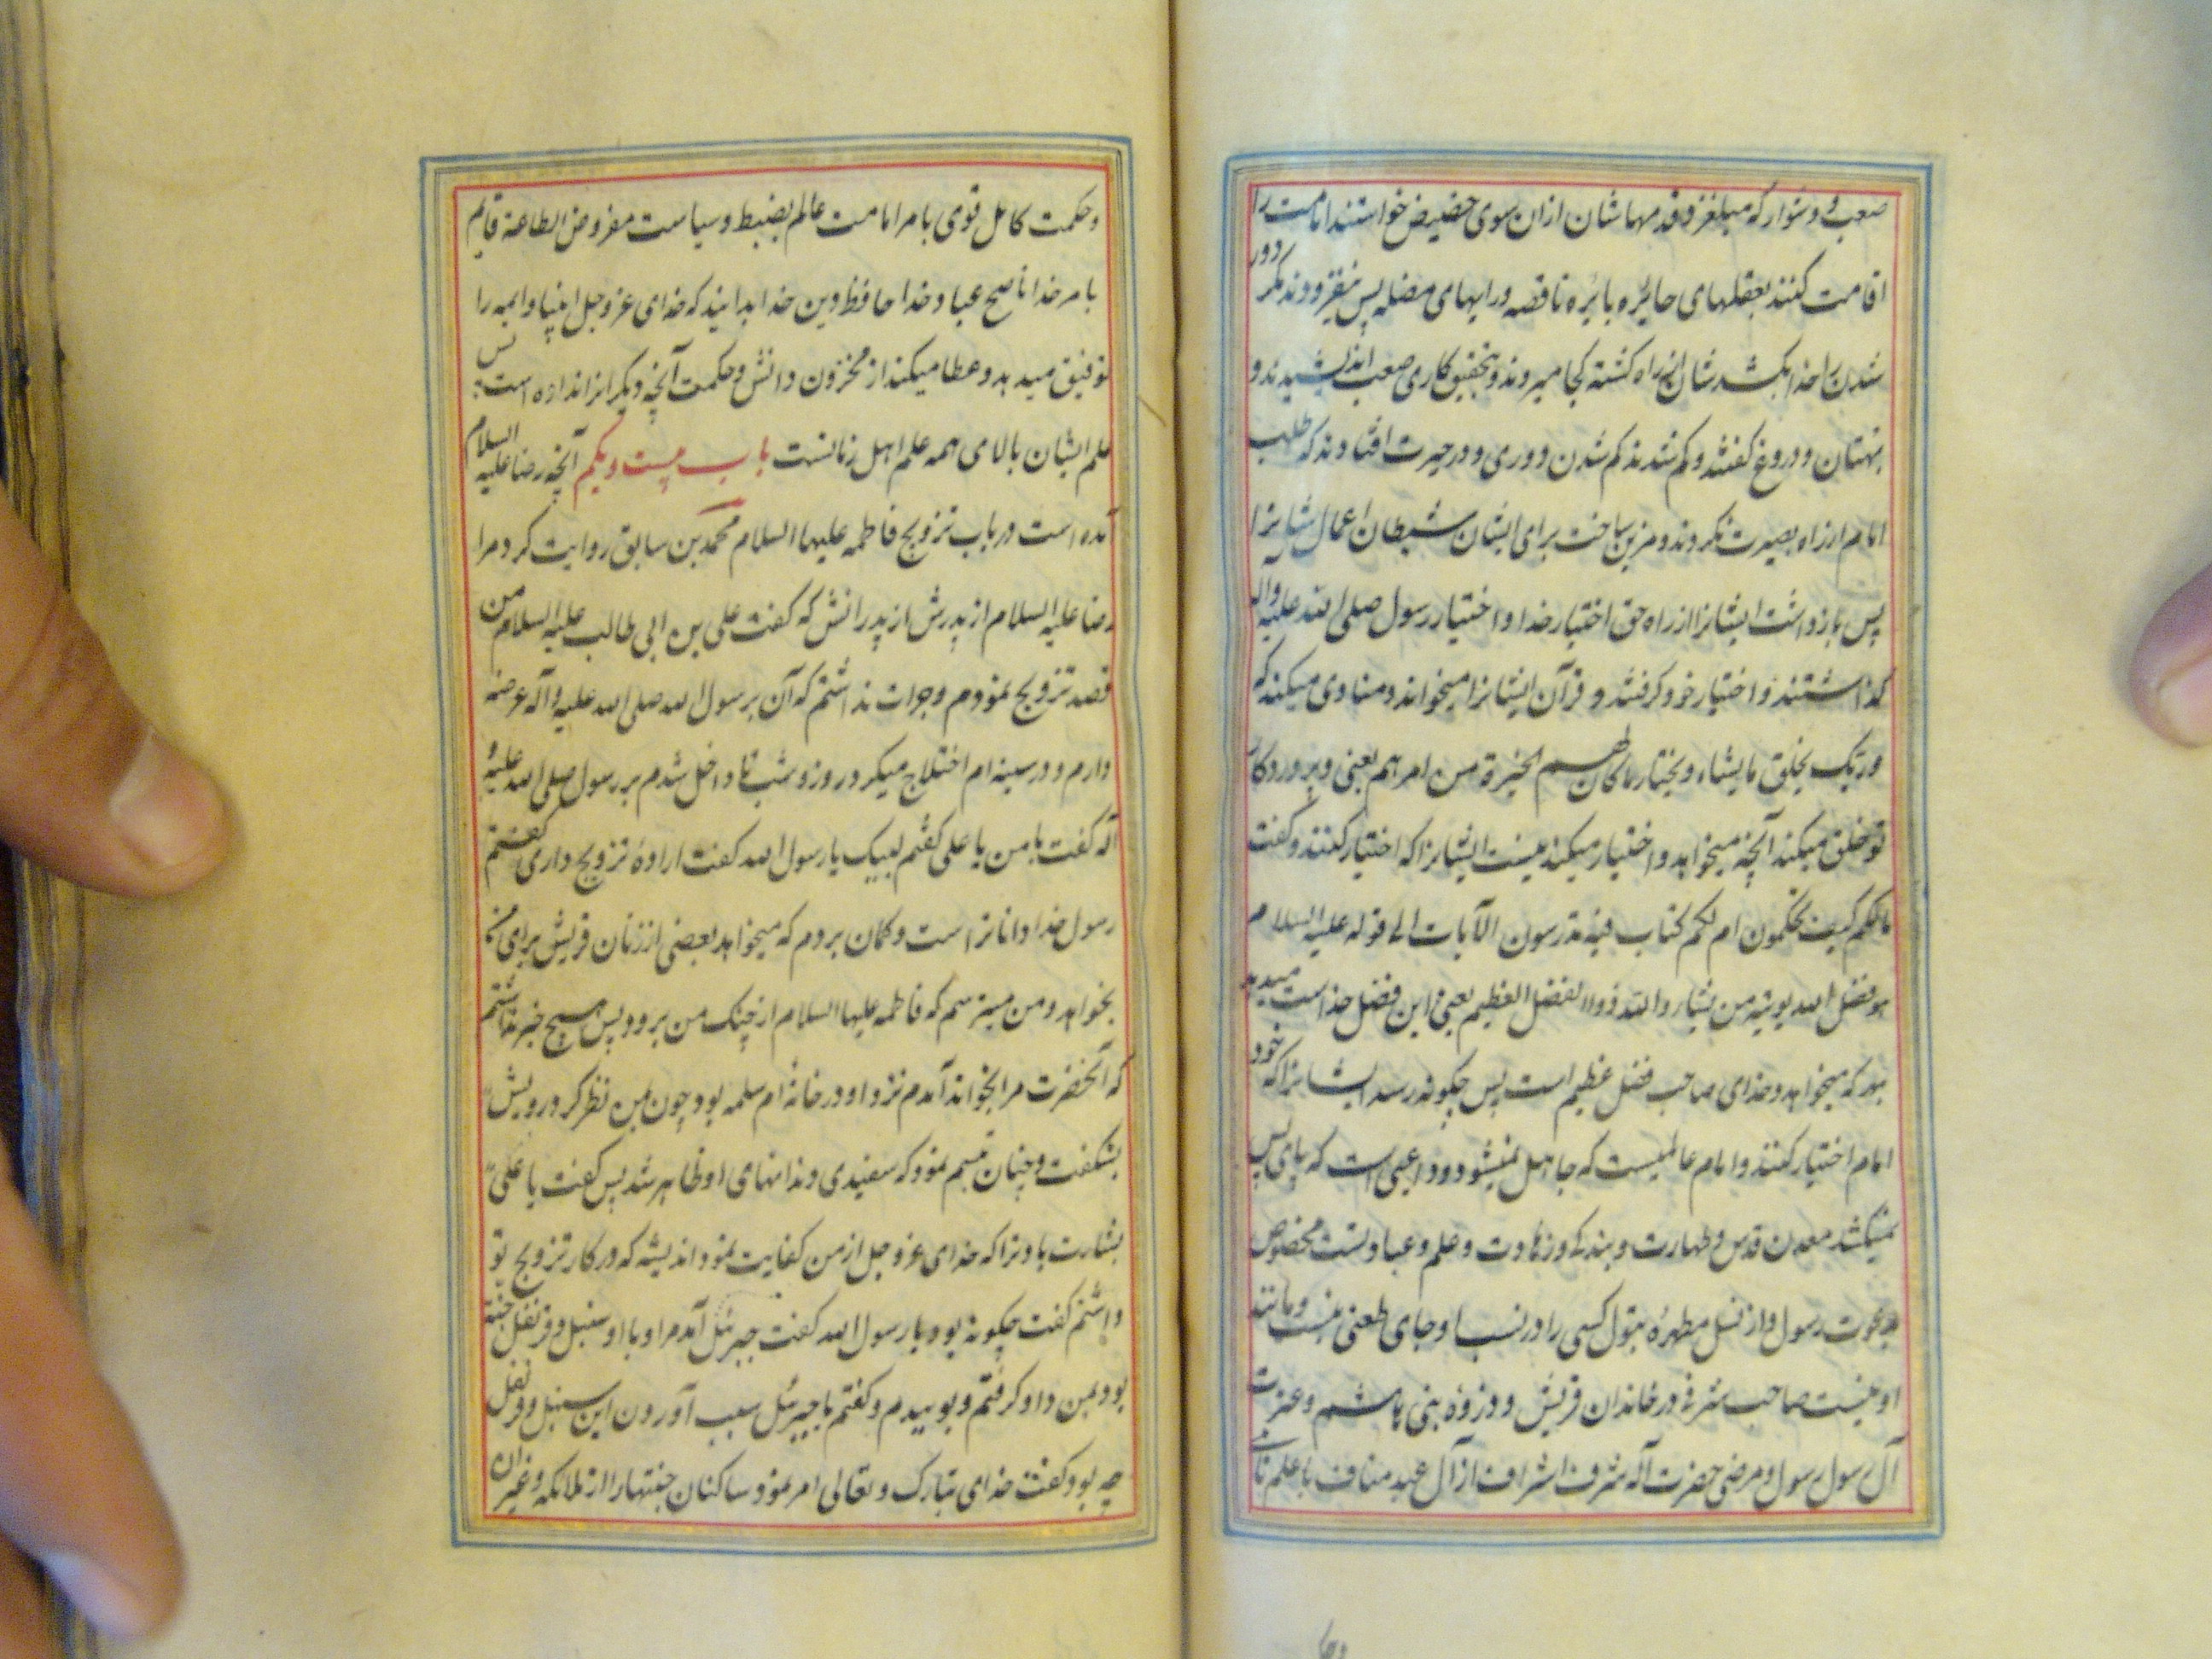 صعب و دشوار که میلغزد قدمهاشان ازان سوی حضیض خواستند امامت را
اقامت کنند بعقلهای حائره بائره ناقصه و رایهای مضله پس نیفزودند مگر دور
شدن را خدا بکشد شان این راه کشته کجا میروند و بتحقیق کاری صعب اندیشیدند و
بهتان و دروغ گفتند و گم شدند گم شدن دوری و در حیرت افتادند که طلب
امام از راه بصیرت نکردند و مزین ساخت برای ایشان شیطان اعمال شانرا
پس بازداشت ایشانرا از راه حق اختیار خدا و اختیار رسول صلی الله علیه واله
گذاشتند و اختیار خود گرفتند و قرآن ایشانرا میخواند و منادی میکند که
وربک یخلق مایشاء ویختار ماکان لهم الخیرة من امرهم یعنی و پروردکار
تو خلق میکند آنچه میخواهد و اختیار میکند نیست ایشانرا که اختیار کنند و گفت
مالکم کیف تحکمون ام لکم کتاب فیه تدرسون الآیات الی قوله علیه السلام
هو فضل الله یوتیه من یشاء والله ذوالفضل العظیم یعنی این فضل خداست میدهد
بهر که میخواهد و خدای صاحب فضل عظیم است پس چگونه رسد ایشانرا که خود
امام اختیار کنند و امام عالمیست که جاهل نمیشود و داعیی است که پای پس
نمیکشد معدن قدس و طهارت و بندگی و زهادت و علم و عبادتست مخصوص
بدعوت رسول و از نسل مطهرهٔ بتول کسی را در نسب او جای طعنی نیست و مانند
او نیست صاحب شرفی در خاندان قریش و در ذروهٔ بنی هاشم و عترت
آل رسول رسول و مرضی حضرت اله شرف اشراف از آل عبد مناف با علم تام
وحکمت کامل قوی بامر امامت عالم بضبط و سیاست مفروض الطاعة قایم
بامر خدا ناصح عباد خدا حافظ دین خدا بدانید که خدای عز وجل انبیا و ایمه را
توفیق میدهد و عطا میکند از مخزون دانش و حکمت آنچه دیگرانرا نداده است پس
علم ایشان بالای همه علم اهل زمانست باب بیست و یکم آنچه رضا علیه السلام
آمده است در باب تزویج فاطمه علیها السلام محمد بن سابق روایت کرد مرا
رضا علیه السلام از پدرش از پدرانش که گفت علی بن ابی طالب علیه السلام من
قصد تزویج نمودم و جرات نداشتم که آن بر رسول الله صلی الله علیه و آله عرضه
دارم و در سینه ام اختلاج میکرد روز و شب تا داخل شدم بر رسول صلی الله علیه و
آله گفت بامن یا علی گفتم لبیک یا رسول الله گفت ارادهٔ تزویج داری گفتم
رسول خدا داناتر است و گمان بردم که میخواهد بعضی از زنان قریش برای من
بخواهد و من میترسم که فاطمه علیها السلام از چنک من برود پس هیچ خبر نداشتم
که آنحضرت مرا بخواند آمدم نزد او در خانهٔ ام سلمه بود چون بمن نظر کرد رویش
بشکفت و چنان تبسم نمود که سفیدی دندانهای او ظاهر شد پس گفت یا علی
بشارت باد ترا که خدای عز و جل از من کفایت نمود اندیشه که در کار تزویج تو
داشتم گفت چگونه بود یا رسول الله گفت جبرئیل آمد مرا و با او سنبل و قرنفل جنة
بود بمن داد گرفتم و بوییدم و گفتم با جبرئیل سبب آوردن این سنبل و قرنفل
چه بود گفت خدای تبارک و تعالی امر نمود ساکنان جنتها را از ملائکه و غیر ان